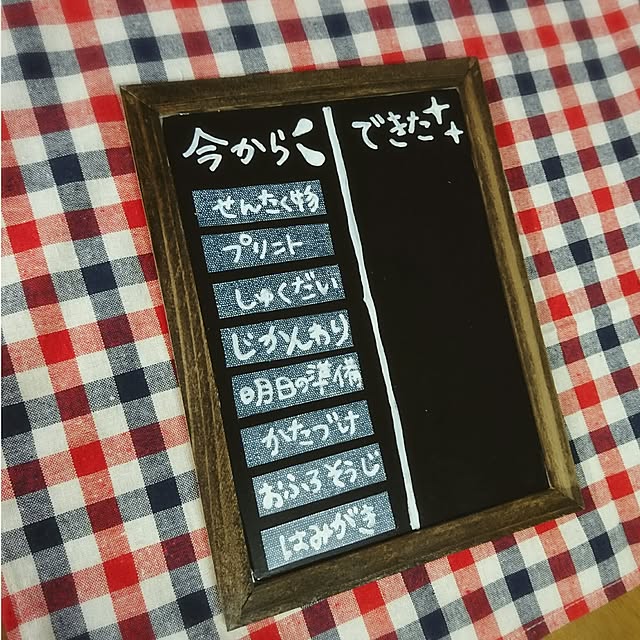 今から
できた
せんたく物
プリント
しゅくだい
じかんわり
明日の準備
かたづけ
おふろそうじ
はみがき